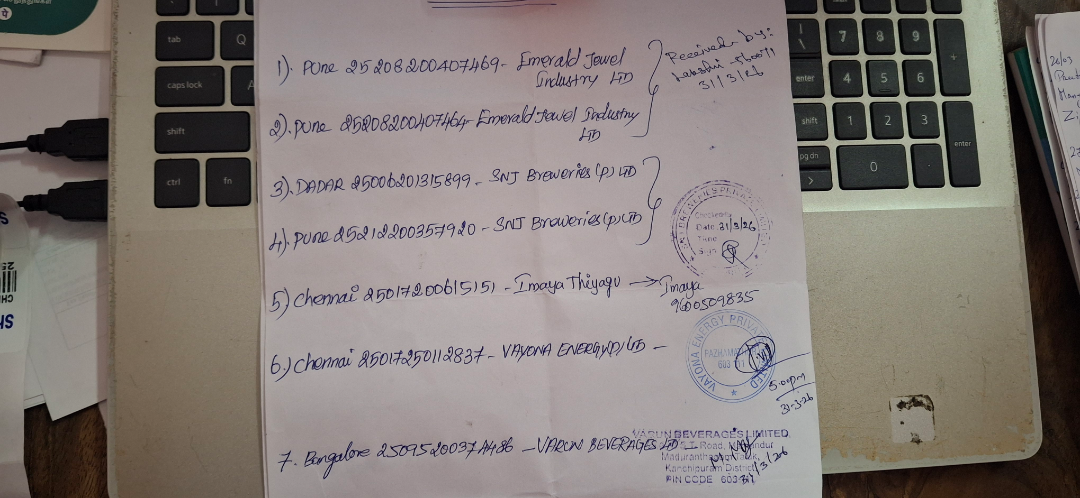 1). Pune 25208200407469 - Emerald Jewel
Industry LTD
Received by:
Lakshmi
31/3/26
2). Pune 25208200407464 - Emerald Jewel Industry
LTD
3). DADAR 25006201315899 - SNJ Breweries (P) LTD
4). Pune 25212200357920 - SNJ Breweries (P) LTD
Date 31/3/26
Time
Sign
5) Chennai 25017200615151 - Imaya Thiyagu → Imaya
9600509835
6.) Chennai 25017250112837 - VAYONA ENERGY(P) LTD -
VAYONA ENERGY PRIVATE LIMITED
5.00pm
31-3-26
7. Bangalore 25095200374486 - VARUN BEVERAGES LTD -
VARUN BEVERAGES LIMITED
Kanchipuram District
PIN CODE
31/3/26
tab
Q
caps lock
A
shift
ctrl
fn
7 8 9 +
enter 4 5 6
shift 1 2 3
pg dn 0 enter